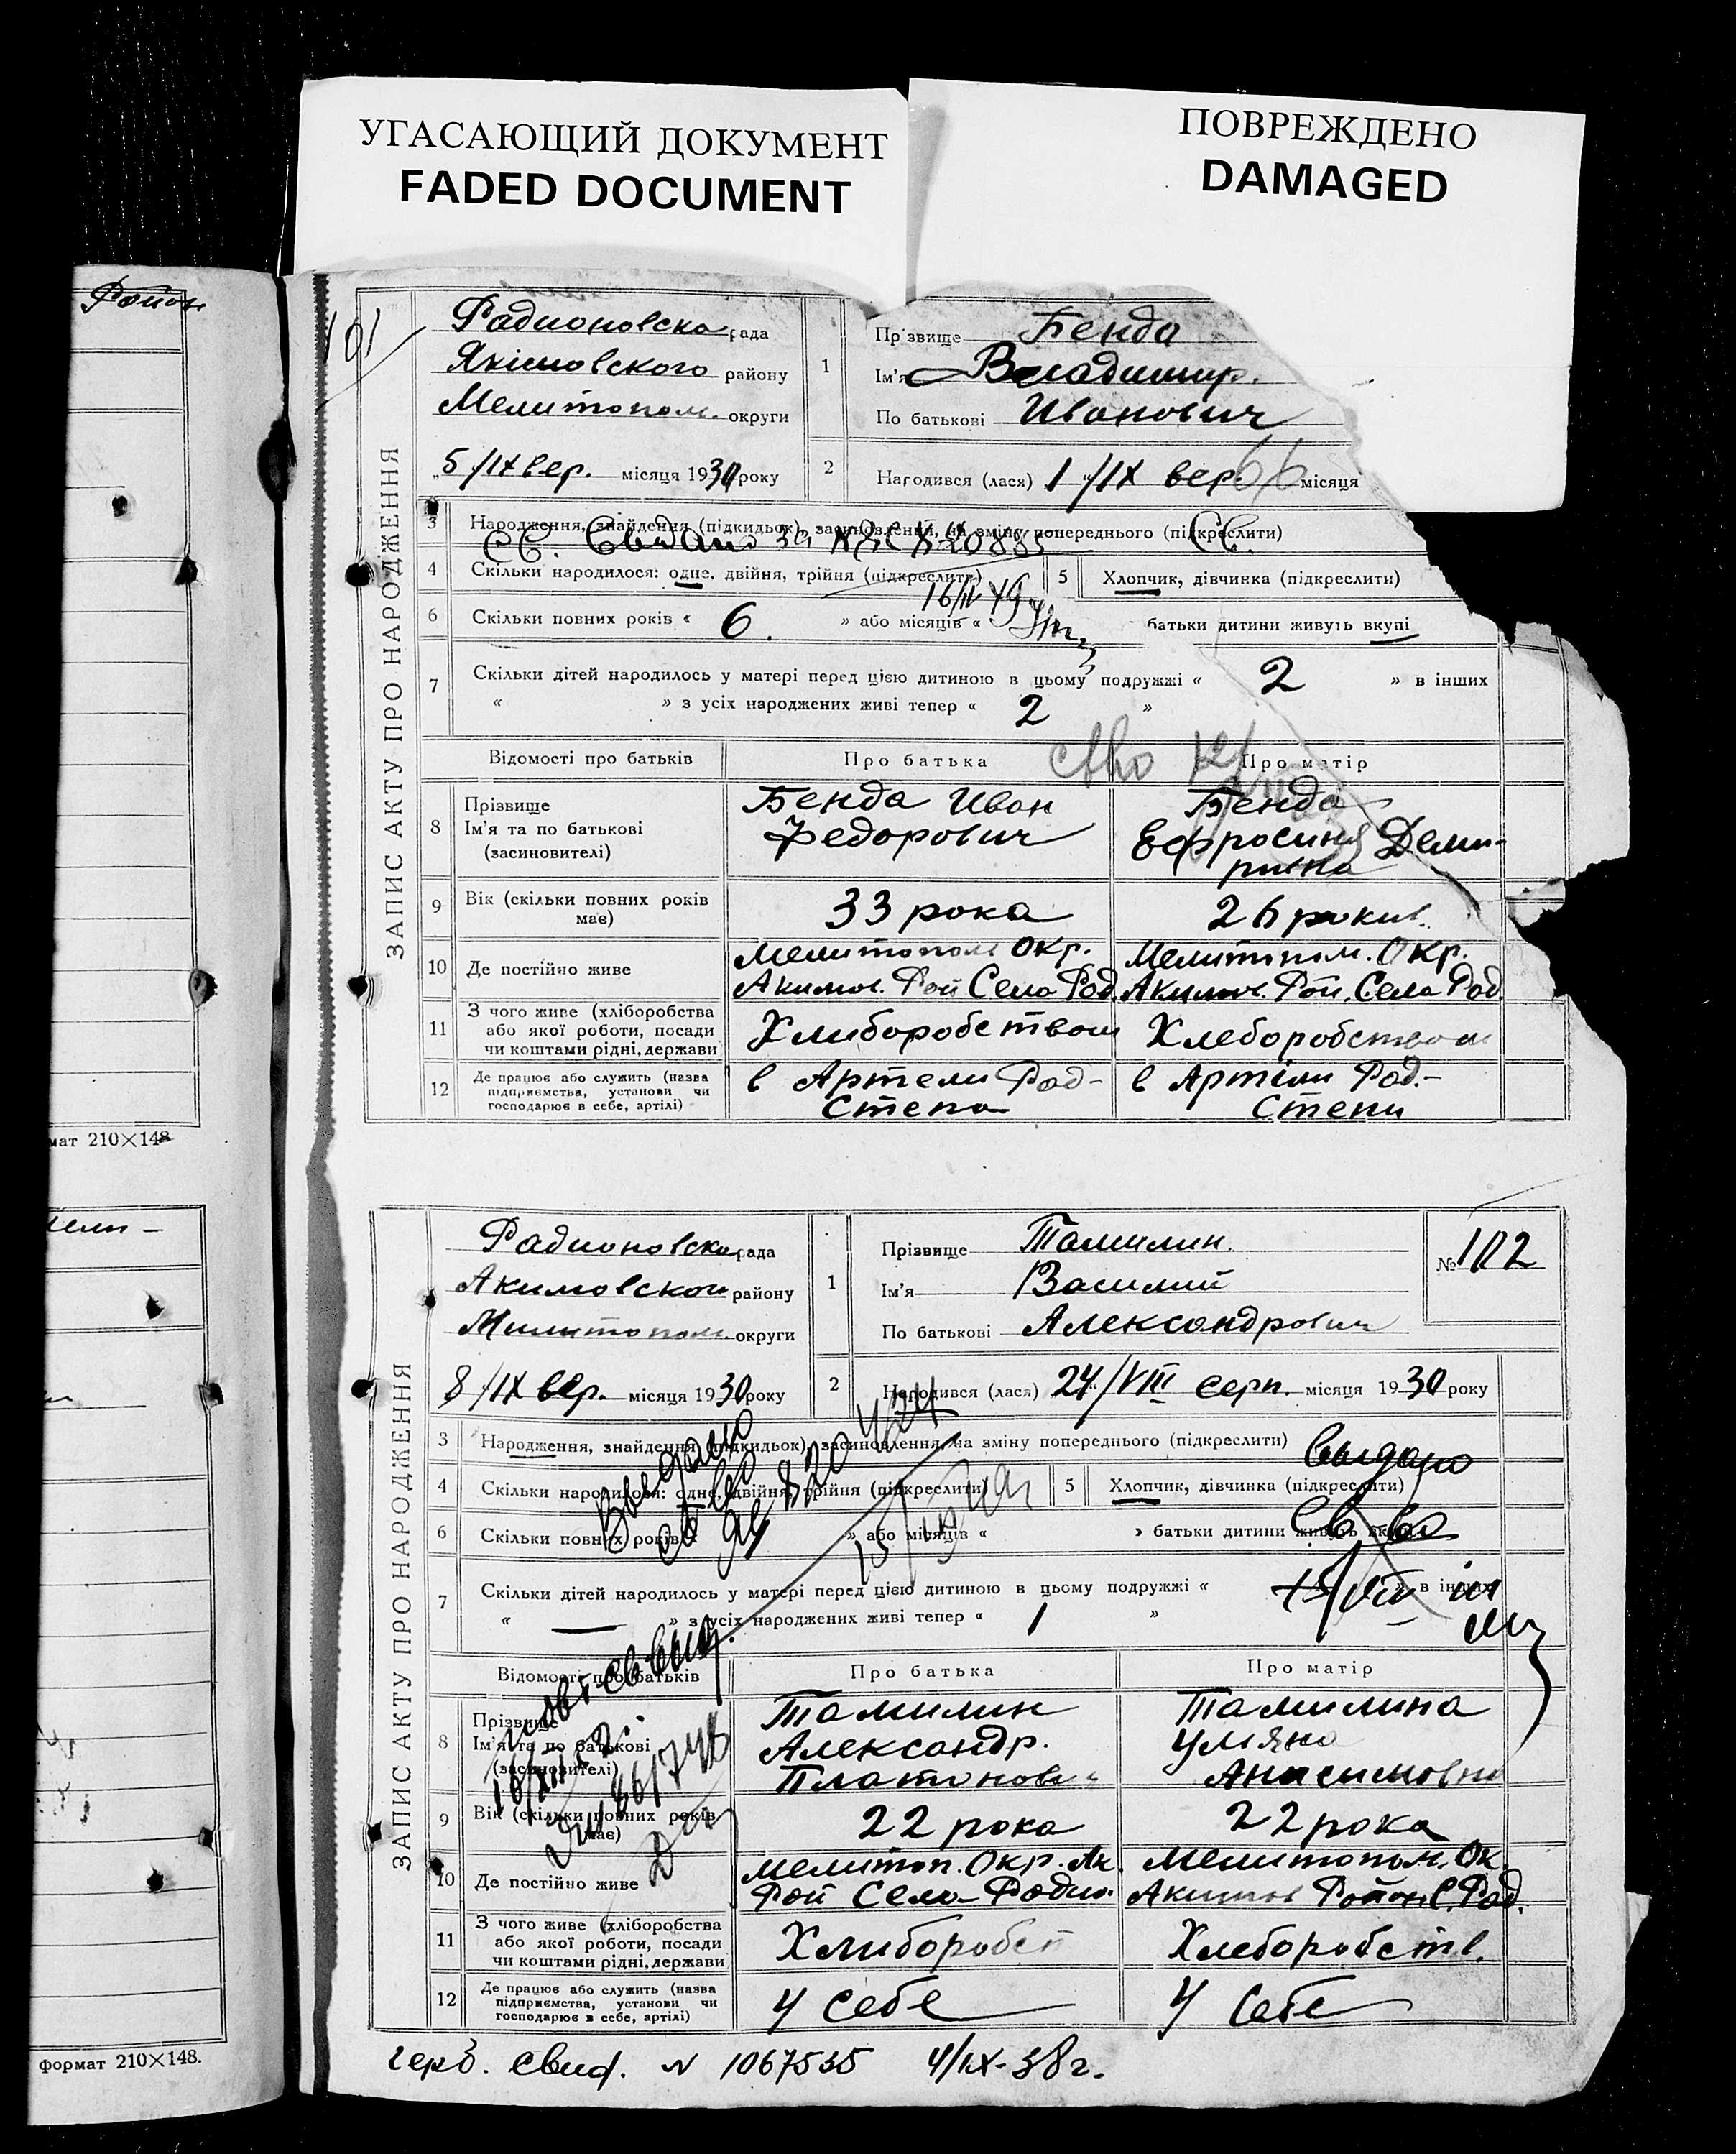 УГАСАЮЩИЙ ДОКУМЕНТ
FADED DOCUMENT
ПОВРЕЖДЕНО
DAMAGED
Район
мат 210×148
формат 210×148.
101
ЗАПИС АКТУ ПРО НАРОДЖЕННЯ
Радионовска рада
Якімовского району
Мелитопол. округи
5/IX вер. місяця 1930 року
1
Прізвище Бенда
Ім'я Владимир.
По батькові Иванович
2
Народився (лася) 1/IX вер. місяця
3 Народження, знайдення (підкидьок), засиновлення, на зміну попереднього (підкреслити)
4 Скільки народилося: одне, двійня, трійня (підкреслити)
5 Хлопчик, дівчинка (підкреслити)
16/IV 49
6 Скільки повних років « 6. » або місяців « батьки дитини живуть вкупі
7 Скільки дітей народилось у матері перед цією дитиною в цьому подружжі « 2 » в інших
« » з усіх народжених живі тепер « 2 »
Відомості про батьків Про батька Про матір
8 Прізвище
Ім'я та по батькові
(засиновителі)
Бенда Иван
Федорович
Бенда
Ефросиня Деми-
9 Вік (скільки повних років
має)
33 рока
26 рокив.
10 Де постійно живе
Мелитопол Окр.
Акимов. Рай Село Род.
Мелитопол. Окр.
Акимов. Рай. Село Род
11 З чого живе (хліборобства
або якої роботи, посади
чи коштами рідні, держави
Хлиборобством
Хлеборобством
12 Де працює або служить (назва
підприємства, установи чи
господарює в себе, артілі)
в Артели Род-
Степа
в Артіли Род.-
Степи
ЗАПИС АКТУ ПРО НАРОДЖЕННЯ
Радионовска рада
Акимовской району
Милитопол округи
8/IX вер. місяця 1930 року
1
Прізвище Тамилин.
Ім'я Василий
По батькові Александрович
№ 102
2
Народився (лася) 24/VIII серп. місяця 1930 року
3 Народження, знайдення (підкидьок), засиновлення, на зміну попереднього (підкреслити)
Выдано
4 Скільки народилося: одне, двійня, трійня (підкреслити)
5 Хлопчик, дівчинка (підкреслити)
Св-во
6 Скільки повних років « » або місяців « » батьки дитини живуть вкупі
7 Скільки дітей народилось у матері перед цією дитиною в цьому подружжі « » в інших
« — » з усіх народжених живі тепер « 1 »
Відомості про батьків Про батька Про матір
8 Прізвище
Ім'я та по батькові
(засиновителі)
Тамилин
Александр.
Платонов
Тамилина
Уляна
Анисимовна
9 Вік (скільки повних років
має)
22 рока
22 рока
10 Де постійно живе
Мелитоп. Окр. Ак.
Рай Село-Радио.
Мелитопол. Ок.
Акимов Район С. Рад.
11 З чого живе (хліборобства
або якої роботи, посади
чи коштами рідні, держави
Хлиборобст
Хлеборобств.
12 Де працює або служить (назва
підприємства, установи чи
господарює в себе, артілі)
У себе
У себе
герб. свид. N 1067535 4/IX-38 г.